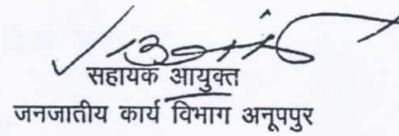 सहायक आयुक्त
जनजातीय कार्य विभाग अनूपपुर